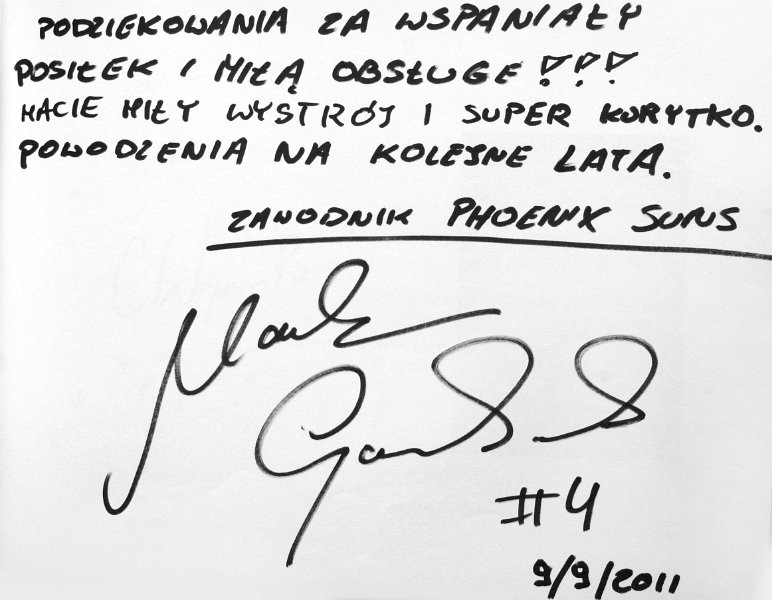 PODZIEKOWANIA ZA WSPANIAŁY
POSIŁEK I MIŁĄ OBSŁUGE !!!
MACIE MIŁY WYSTRÓJ I SUPER KORYTKO.
POWODZENIA NA KOLEJNE LATA.
ZAWODNIK PHOENIX SUNS
Marcin
Gortat
#4
9/9/2011